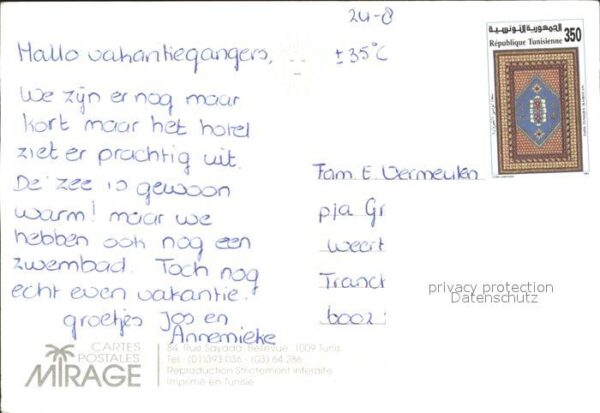 24-8
Hallo vakantiegangers,
± 35°C
We zijn er nog maar
kort maar het hotel
ziet er prachtig uit.
De zee is gewoon
warm! maar we
hebben ook nog een
zwembad. Toch nog
echt even vakantie.
groetjes Jos en
Annemieke
الجمهورية التونسية
République Tunisienne 350
Fam. E. Vermeulen
p/a Gr
Weert
Tranct
6002
privacy protection
Datenschutz
CARTES
POSTALES
MIRAGE
84, Rue Sayada, Bellevue, 1009 Tunis
Tél.: (01)393.036 - (03) 64.286
Reproduction Strictement interdite
Imprimé en Tunisie